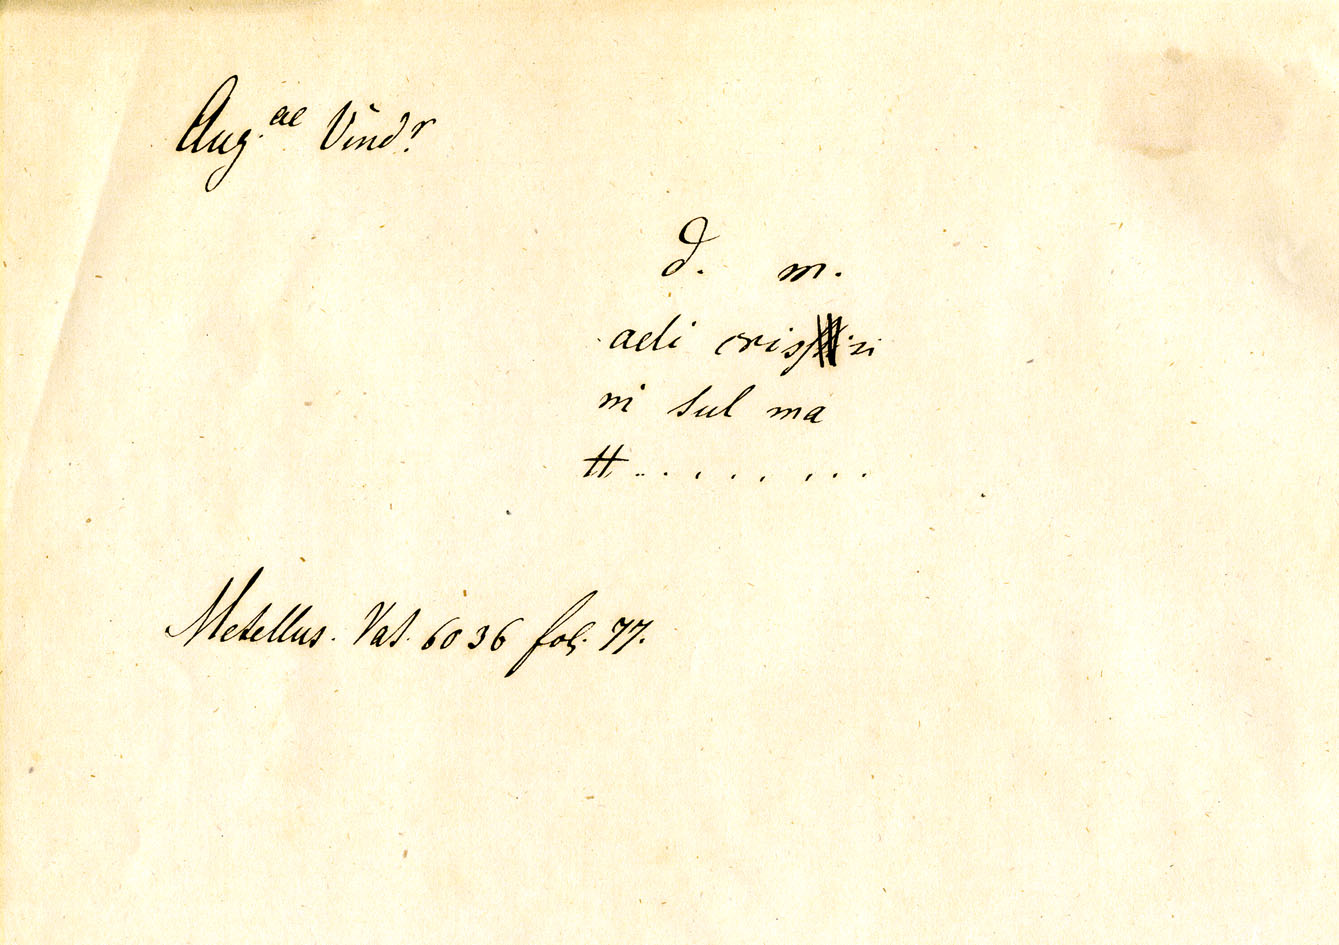 Aug.ae Vind.r
d. m.
aeli cris
ni sul ma
tt . . . . . . . . .
Metellus. Vat. 6036 fol. 77.